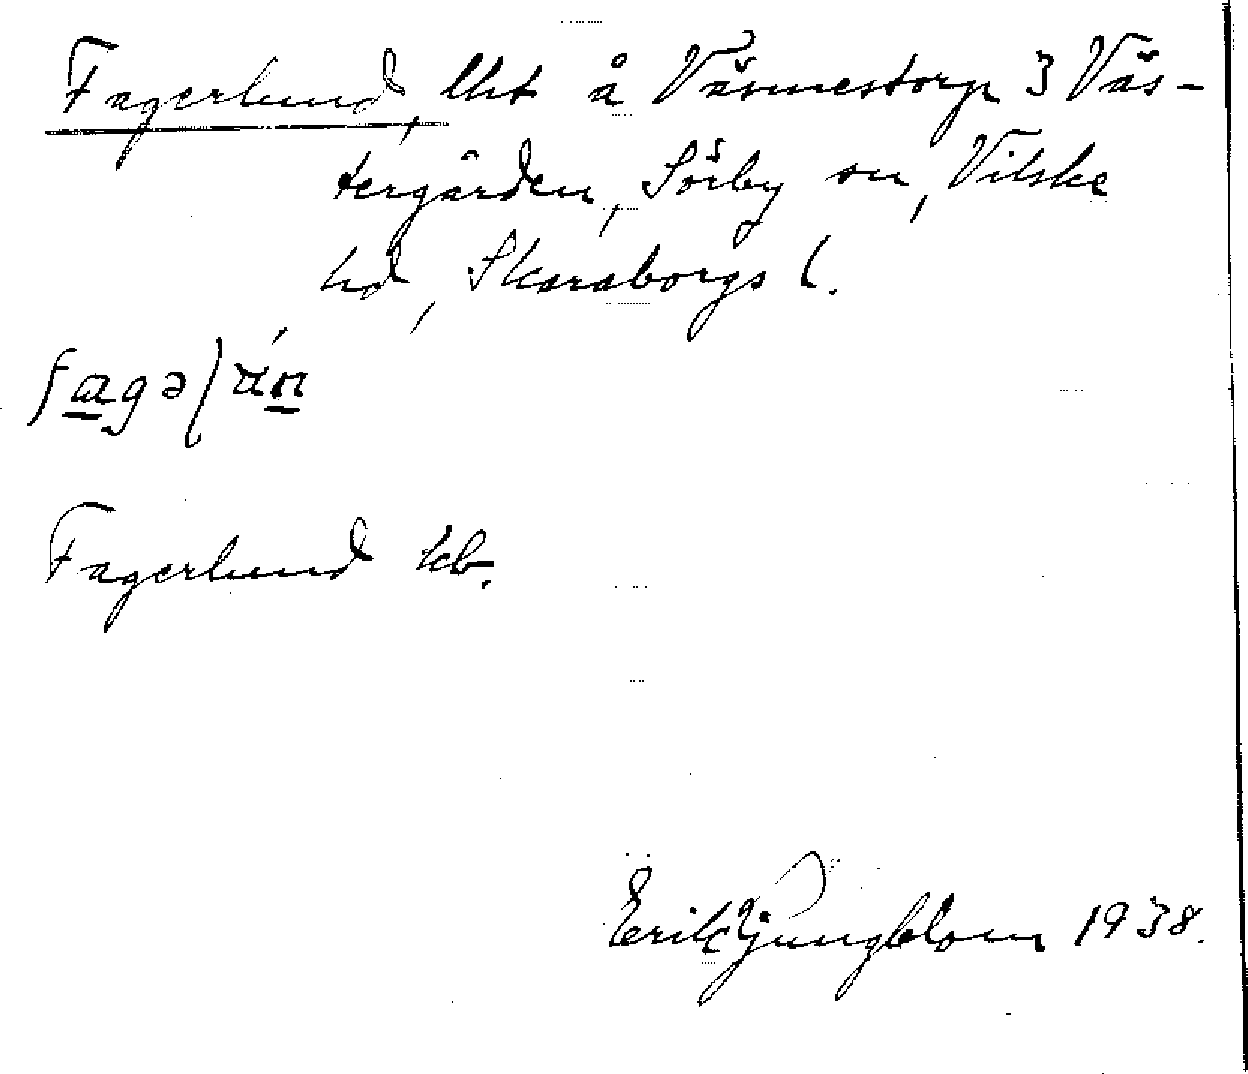 Fagerlund, lht å Väsmestorp 3 Väs-
tergården, Sörby sn, Vilske
hd, Skaraborgs l.
Fagerlund kb.
Erik Ljungblom 1938.